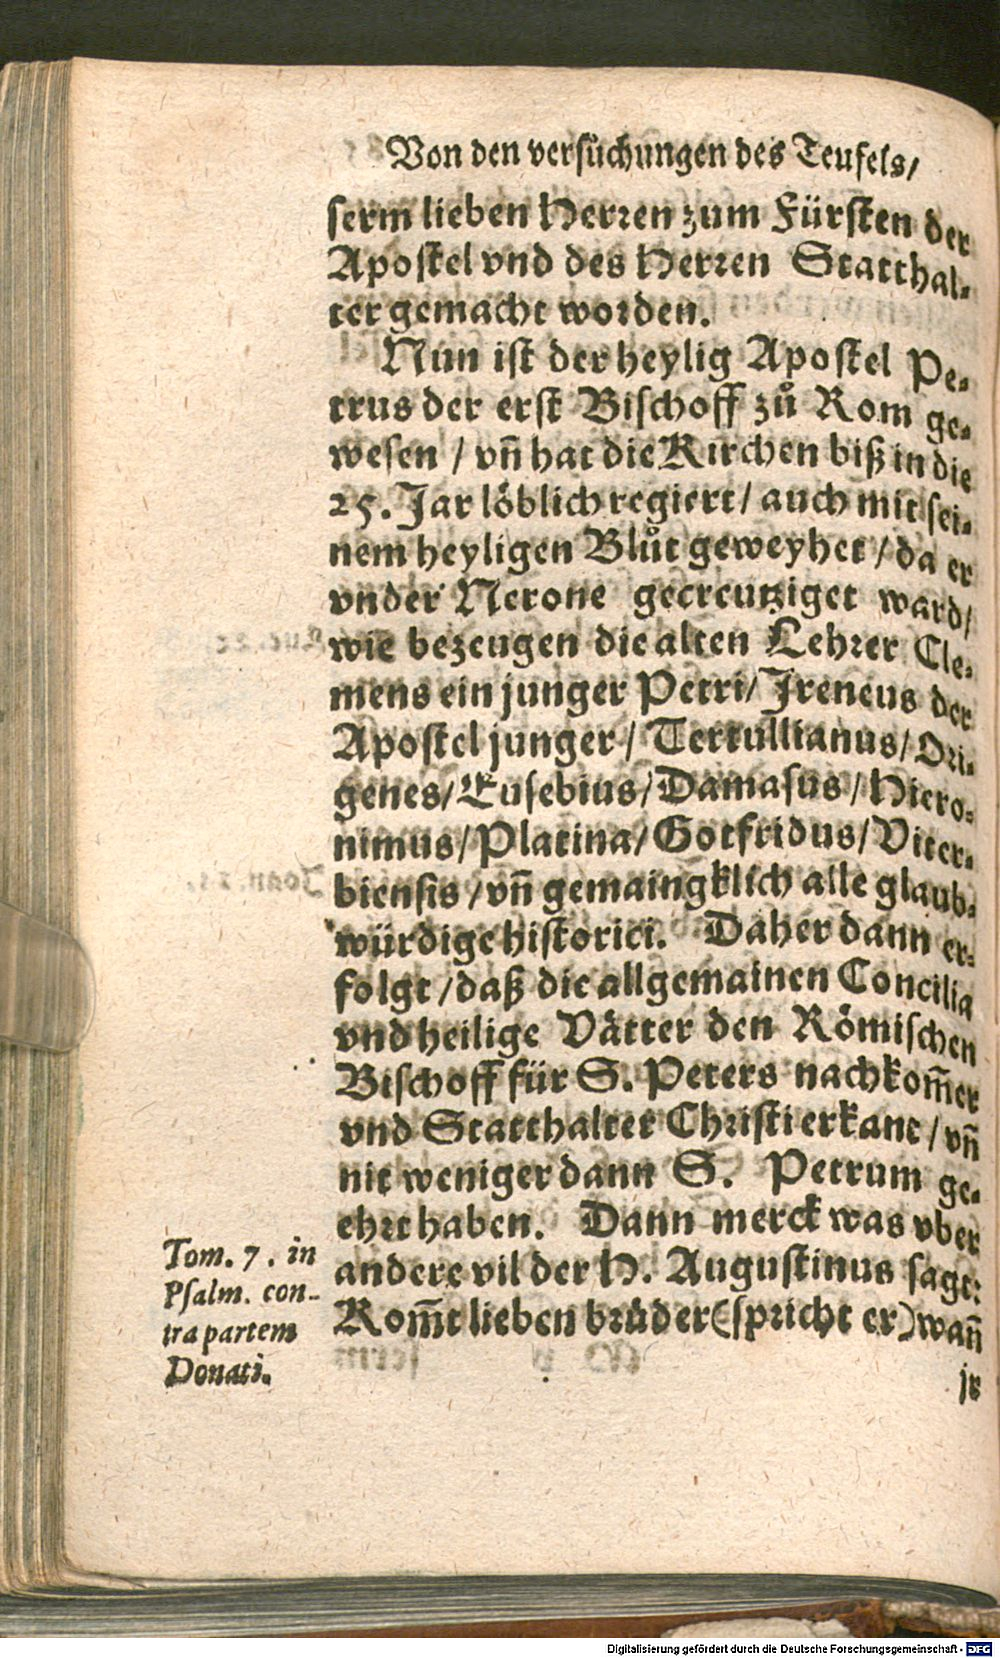 Von den versuͤchungen des Teufels/
serm lieben Herren zum Fürsten der
Apostel vnd des Herren Statthal-
ter gemacht worden.
Nun ist der heylig Apostel Pe-
trus der erst Bischoff zů Rom ge-
wesen / vn̄ hat die Kirchen biß in die
25. Jar löblich regiert/ auch mit sei-
nem heyligen Blůt geweyhet / da er
vnder Nerone gecreutziget ward/
wie bezeugen die alten Lehrer Cle-
mens ein junger Petri/ Jreneus der
Apostel junger / Tertullianus/ Ori-
genes/ Eusebius/ Damasus / Hiero-
nimus/ Platina/ Gotfridus/ Viter-
biensis / vn̄ gemaingklich alle glaub-
würdige historici. Daher dann er-
folgt / daß die allgemainen Concilia
vnd heilige Vätter den Römischen
Bischoff für S. Peters nachkom̄er
vnd Statthalter Christi erkant / vn̄
nit weniger dann S. Petrum ge-
ehrt haben. Dann merck was vber
andere vil der H. Augustinus sagt:
Kom̄t lieben brüder (spricht er) wan̄
jr
Tom. 7. in
Psalm. con-
tra partem
Donati.
Digitalisierung gefördert durch die Deutsche Forschungsgemeinschaft - DFG